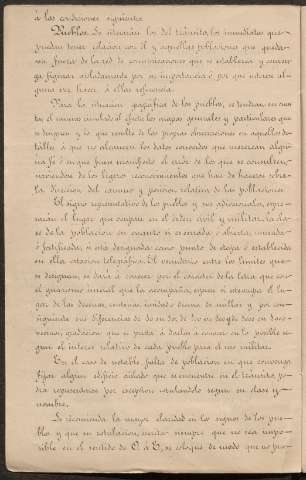 á las condiciones siguientes
Pueblos. Se situarán los del tránsito, los inmediatos que
puedan tener relacion con él y aquellas poblaciones que queda-
sen fuera de la red de comunicaciones que se establezca y conven-
ga figurar aisladamente por su importancia ó por que hubiese al-
guna vez hacer á ellas referencia.
Para la situacion geográfica de los pueblos, se tendrán en cuen-
ta el mismo cuidado al efecto los mapas generales y particulares que
se designen y lo que resulte de las propias observaciones en aquellos de-
talles á que no alcancen los datos conocidos que merezcan algu-
na fé ó que sean manifiesto el error de los que se consulten,
reconocimientos que han de hacerse sobre
la direccion del camino y posicion relativa de las poblaciones.
El signo representativo de los pueblos y sus adicionales, expre-
sarán el lugar que ocupan en el orden civil y militar, la cla-
se de la poblacion en cuanto si es cerrada ó abierta, murada
ó fortificada, si está designada como punto de etapa ó establecida
en ella estacion telegráfica. El vecindario entre los límites que
se designan, se dará á conocer por el carácter de la letra que con
el guarismo inicial que la acompaña, exprese si este ocupa el lu-
gar de las decenas, centenas, unidad ó decena de millar y por con-
siguiente sus diferencias de 10 en 10, de 100 en 100 y de 1000 en 1000
vecinos, gradacion que se presta á darlos á conocer en lo posible se-
gun el interés relativo de cada pueblo para el uso militar.
En el caso de notable falta de poblacion en que convenga
fijar algun edificio aislado que se encuentre en el tránsito, po-
dría representarse por excepcion rotulándolo segun su clase y
nombre.
Se recomienda la mayor claridad en los signos de los pue-
blos y que su rotulacion, escrita siempre que no sea impo-
sible en el sentido de O. á E., se coloque de modo que no pro-